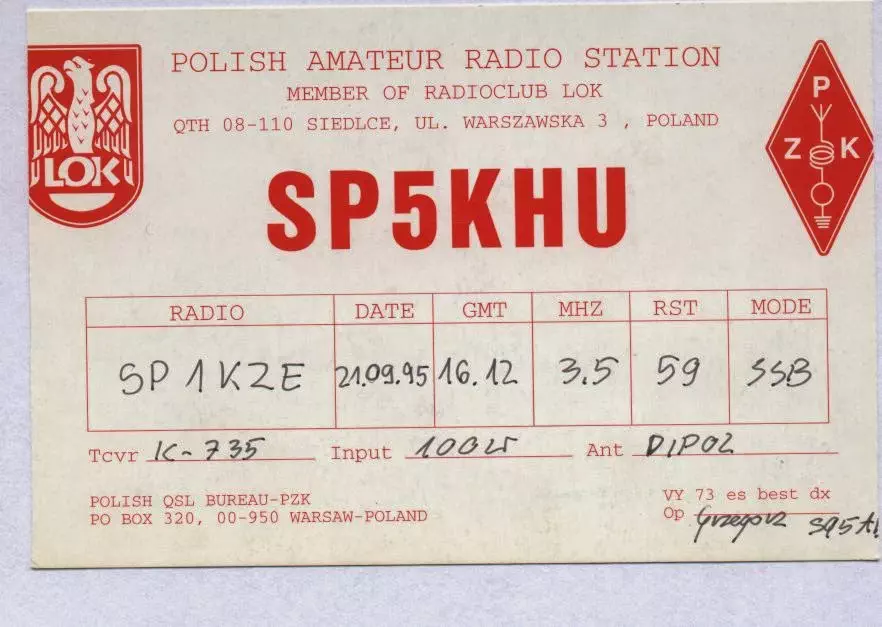 POLISH AMATEUR RADIO STATION
MEMBER OF RADIOCLUB LOK
QTH 08-110 SIEDLCE, UL. WARSZAWSKA 3 , POLAND
LOK
P
Z K
SP5KHU
RADIO DATE GMT MHZ RST MODE
SP1KZE 21.09.95 16.12 3.5 59 SSB
Tcvr IC-735 Input 100W Ant DIPOL
POLISH QSL BUREAU-PZK
PO BOX 320, 00-950 WARSAW-POLAND
VY 73 es best dx
Op Grzegorz